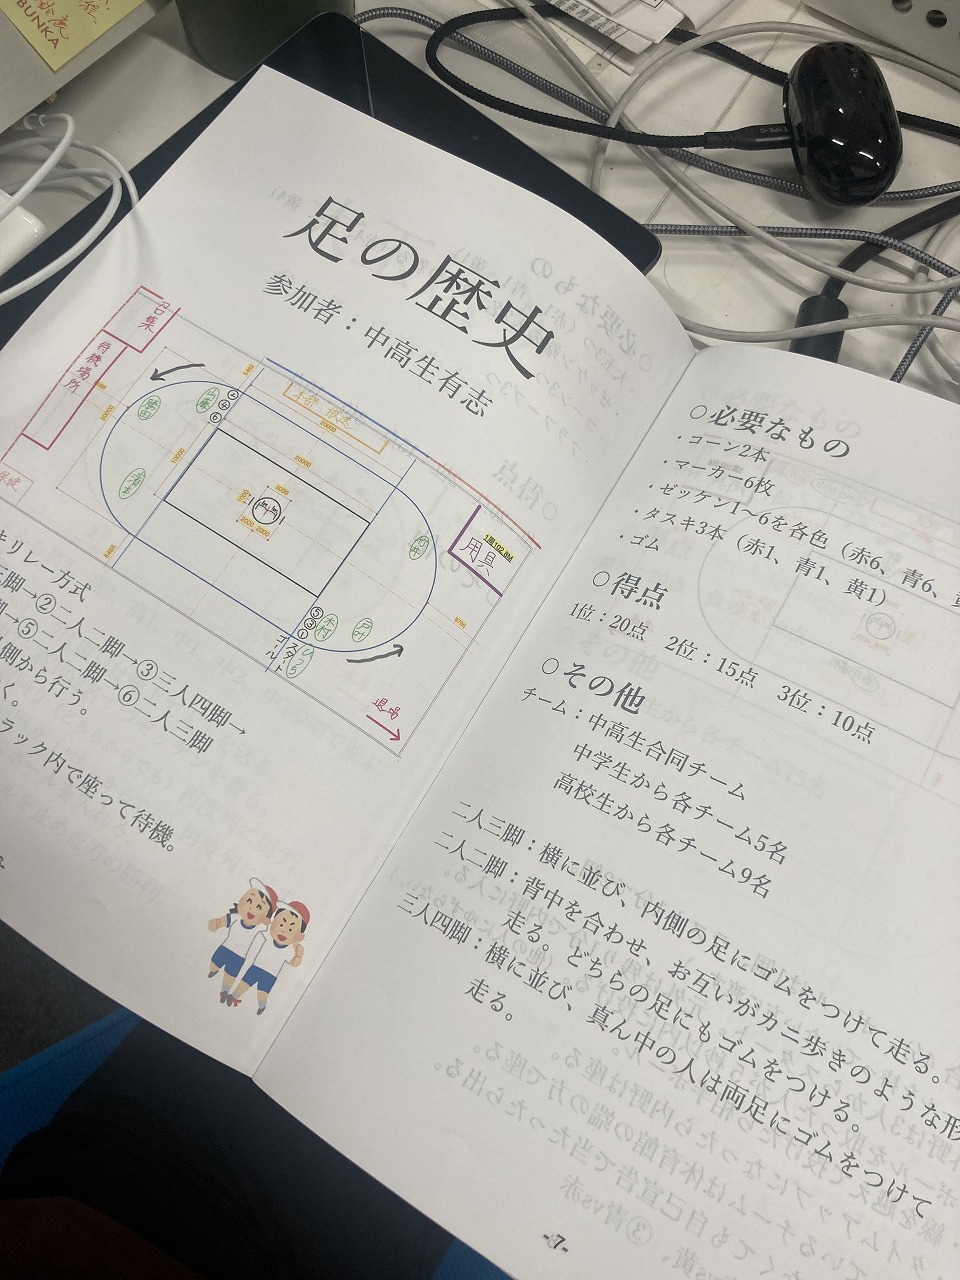 BUNKA
足の歴史
参加者：中高生有志
召集
待機場所
本部 放送
勝田
山藤
②
④
⑥
青木
竹井
1周102.8M
用具
⑤
③
①
木村
戸叶
スタート
ゴール
退場
キリレー方式
三脚→②二人二脚→③三人四脚→
脚→⑤二人二脚→⑥二人三脚
側から行う。
く。
ラック内で座って待機。
○必要なもの
・コーン2本
・マーカー6枚
・ゼッケン1〜6を各色（赤6、青6、
・タスキ3本（赤1、青1、黄1）
・ゴム
○得点
1位：20点 2位：15点 3位：10点
○その他
チーム：中高生合同チーム
中学生から各チーム5名
高校生から各チーム9名
二人三脚：横に並び、内側の足にゴムをつけて走る。
二人二脚：背中を合わせ、お互いがカニ歩きのような形
走る。どちらの足にもゴムをつける。
三人四脚：横に並び、真ん中の人は両足にゴムをつけて
走る。
-7-
TYPE-C